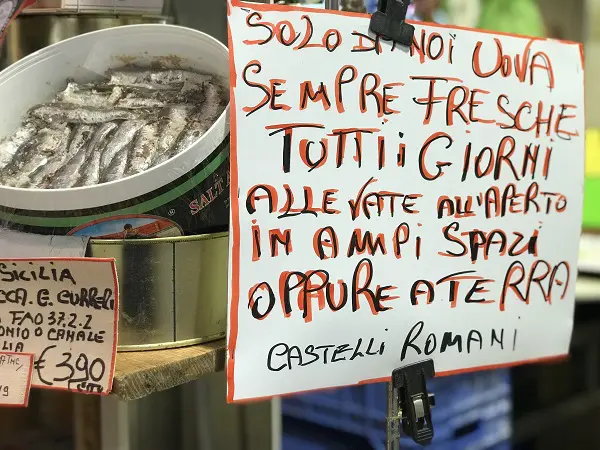 SOLO DA NOI UOVA
SEMPRE FRESCHE
TUTTI i GIORNI
ALLEVATE ALL'APERTO
IN AMPI SPAZI
OPPURE A TERRA
CASTELLI ROMANI
SALT
SICILIA
FAO 37.2.2
€ 3,90